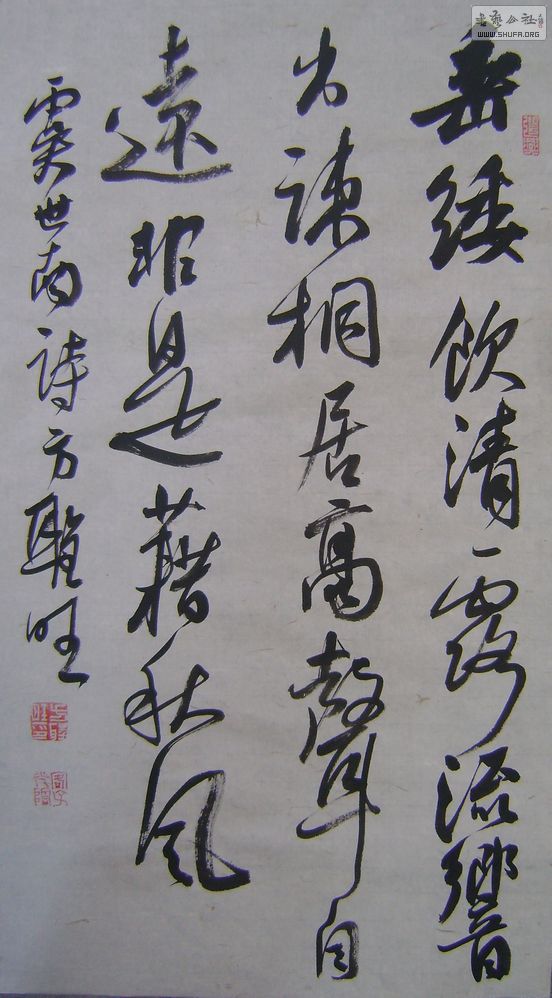 垂緌飲清露流響
出疎桐居高聲自
遠非是藉秋風
虞世南詩方聖旺
書藝公社
WWW.SHUFA.ORG